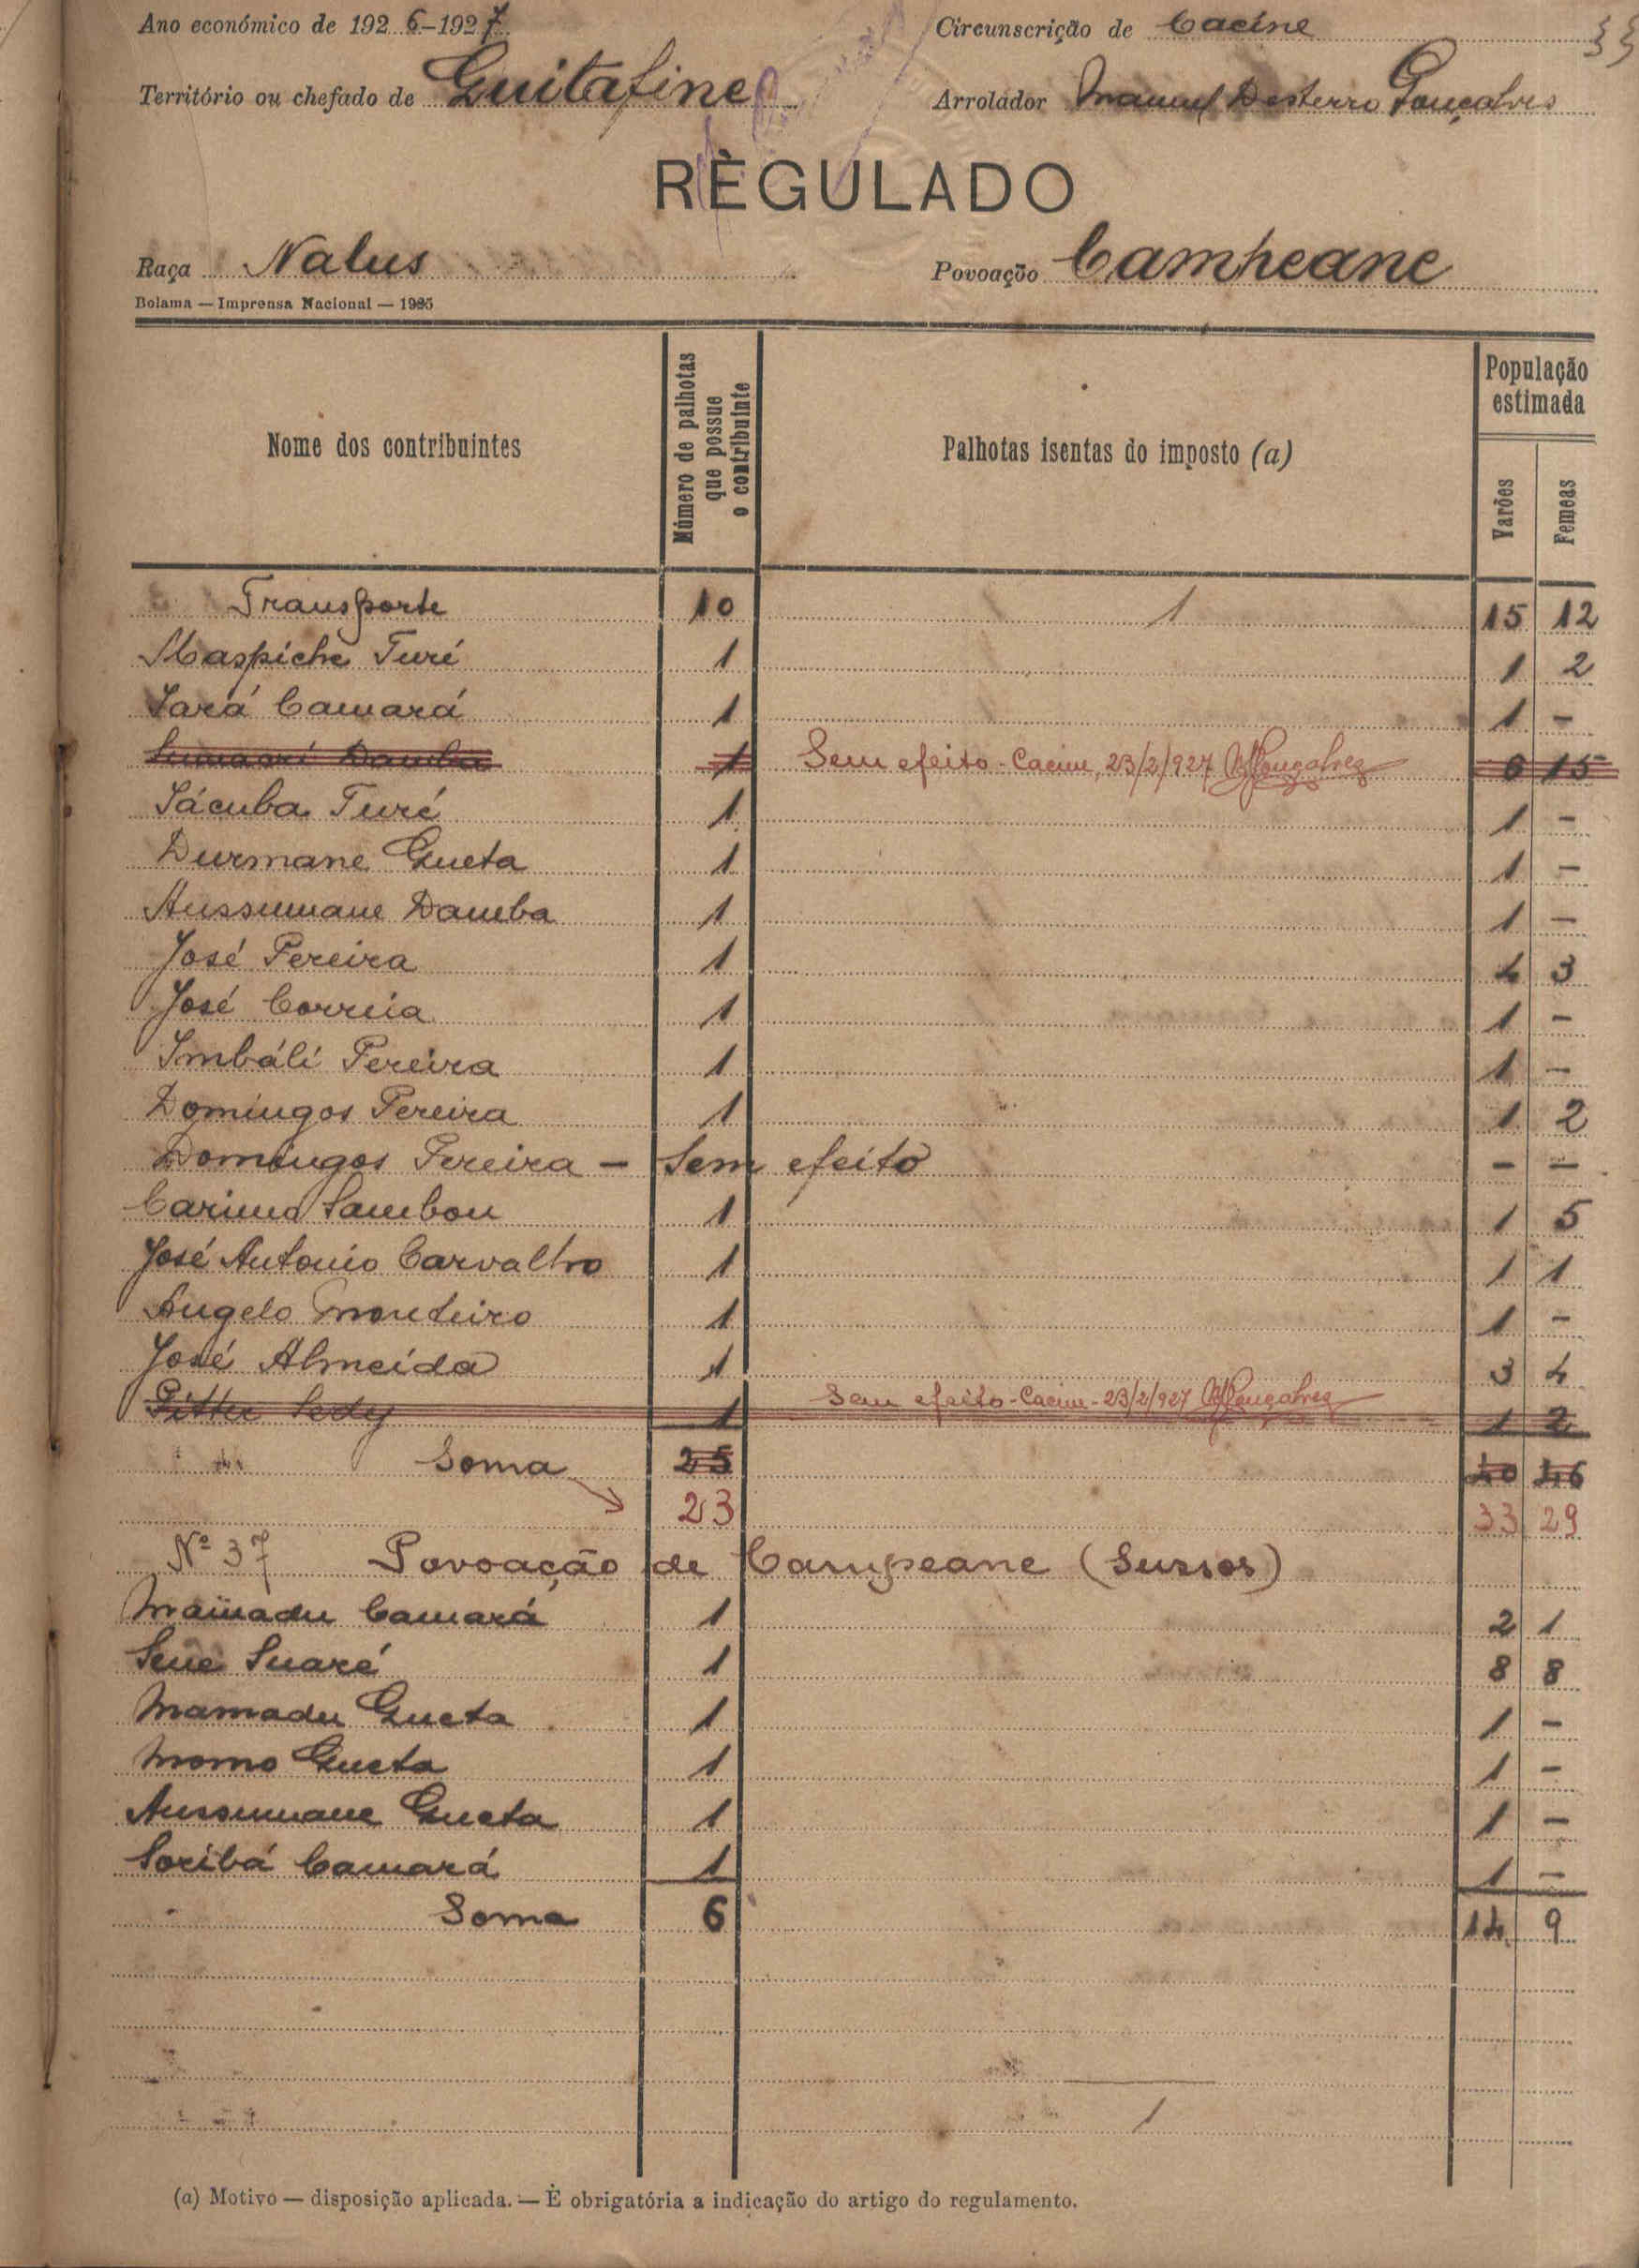 Ano económico de 1926-1927 Circunscrição de Cacine
Território ou chefado de Guitafine Arrolador Manuel Desterro Gonçalves
REGULADO
Raça Nalus Povoação Campeane
Bolama — Imprensa Nacional — 1925
Nome dos contribuintes Número de palhotas que possue o contribuinte Palhotas isentas do imposto (a) População estimada Varões Femeas
Transporte 10 1 15 12
Maspiche Turé 1 1 2
Sará Camará 1 1 -
Damba 1 Sem efeito - Cacine, 23/2/927 MGonçalves 6 15
Sácuba Turé 1 1 -
Durmane Gueta 1 1 -
Aussumane Damba 1 1 -
José Pereira 1 4 3
José Correia 1 1 -
Imbáli Pereira 1 1 -
Domingos Pereira 1 1 2
Domingos Pereira - Sem efeito - -
Carimo Sambou 1 1 5
José Antonio Carvalho 1 1 1
Angelo Monteiro 1 1 -
José Almeida 1 3 4
Sedy 1 Sem efeito - Cacine - 23/2/927 MGonçalves 1 2
Soma 25 40 46
23 33 29
Nº 37 Povoação de Campeane (Sussos)
Mamadu Camará 1 2 1
Sene Suaré 1 8 8
Mamadu Gueta 1 1 -
Momo Gueta 1 1 -
Aussumane Gueta 1 1 -
Soribá Camará 1 1 -
Soma 6 14 9
1
(a) Motivo — disposição aplicada. — É obrigatória a indicação do artigo do regulamento.